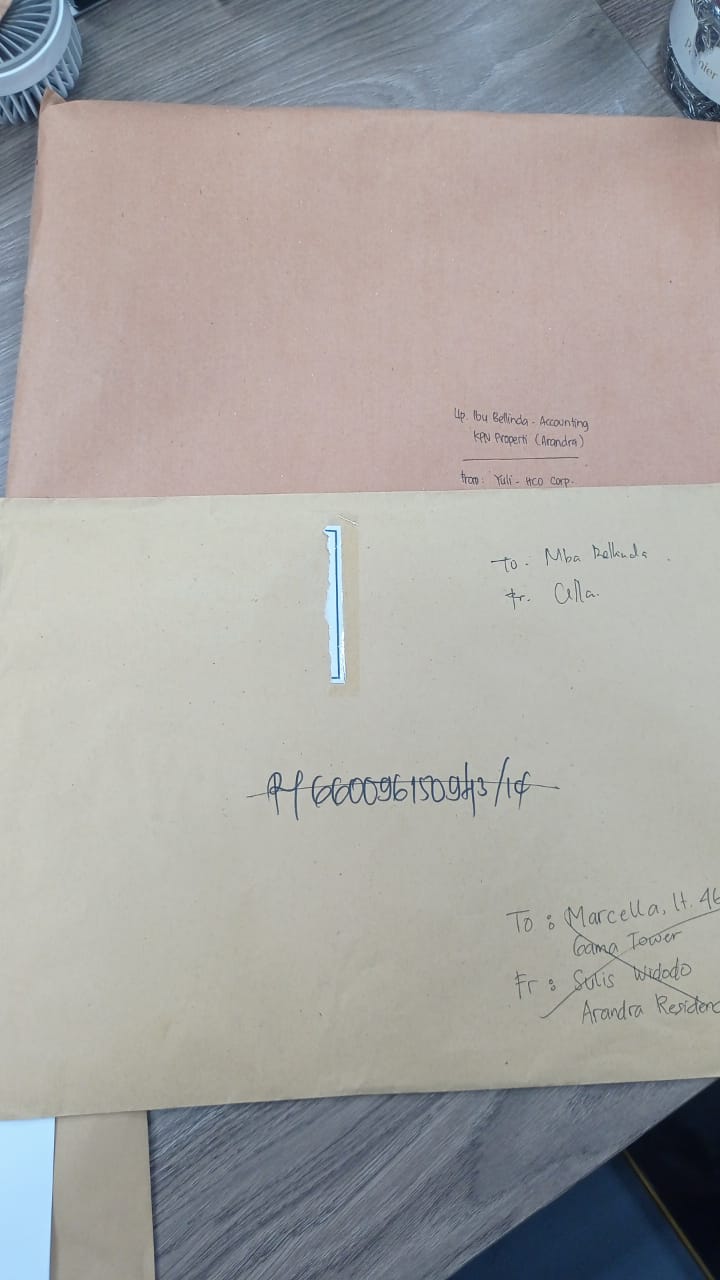 Up. Ibu Bellinda - Accounting
KPN Properti (Arandra)
from: Yuli - HCO Corp.
To. Mba Bellinda.
Fr. Cella.
To : Marcella, lt. 46
Gama Tower
Fr : Sulis Widodo
Arandra Residenc